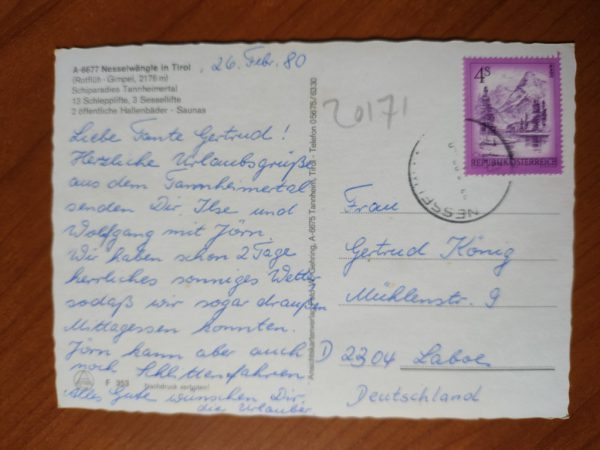 A-6677 Nesselwängle in Tirol
(Rotflüh - Gimpel, 2176 m)
Schiparadies Tannheimertal
13 Schlepplifte, 3 Sessellifte
2 öffentliche Hallenbäder - Saunas
, 26. Febr. 80
Liebe Tante Gertrud!
Herzliche Urlaubsgrüße
aus dem Tannheimertal
senden Dir, Ilse und
Wolfgang mit Jörn.
Wir haben schon 2 Tage
herrliches sonniges Wetter
sodaß wir sogar draußen
Mittagessen konnten.
Jörn kann aber auch
noch Schlittenfahren.
Alles Gute wünschen Dir
die Urlauber
F 353
Nachdruck verboten!
Gehring, A-6675 Tannheim, Tirol - Telefon 05675/6330
20171
4S
REPUBLIK ÖSTERREICH
NESSEL
Frau
Gertrud König
Mühlenstr. 9
D 2304 Laboe
Deutschland